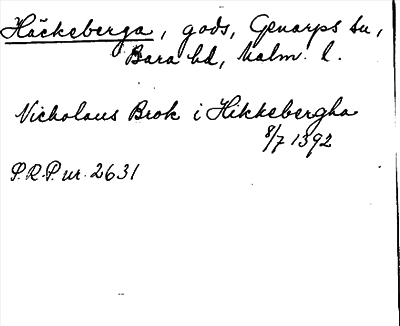 Häckeberga, gods, Genarps sn,
Bara hd, Malm. l.
Nicholaus Brok i Hikkebergha
8/7 1392
P.R.P. nr. 2631